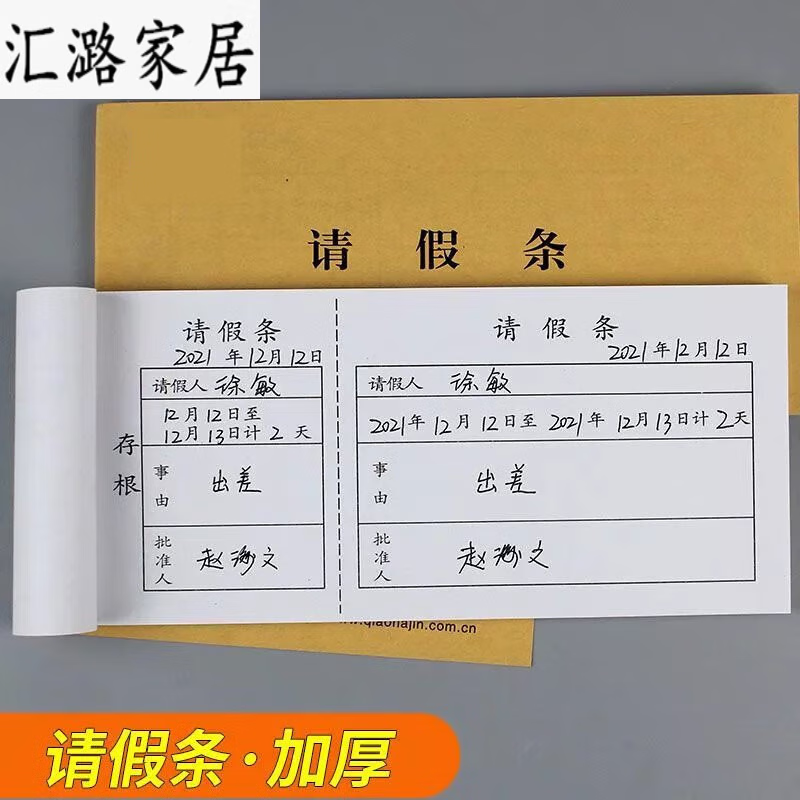 汇潞家居
请假条
请假条
2021年12月12日
请假人 徐敏
12月12日至
12月13日计2天
存根
事由
出差
批准人
赵海文
请假条
2021年12月12日
请假人 徐敏
2021年12月12日至2021年12月13日计2天
事由
出差
批准人
赵海文
www.qiaohajin.com.cn
请假条·加厚